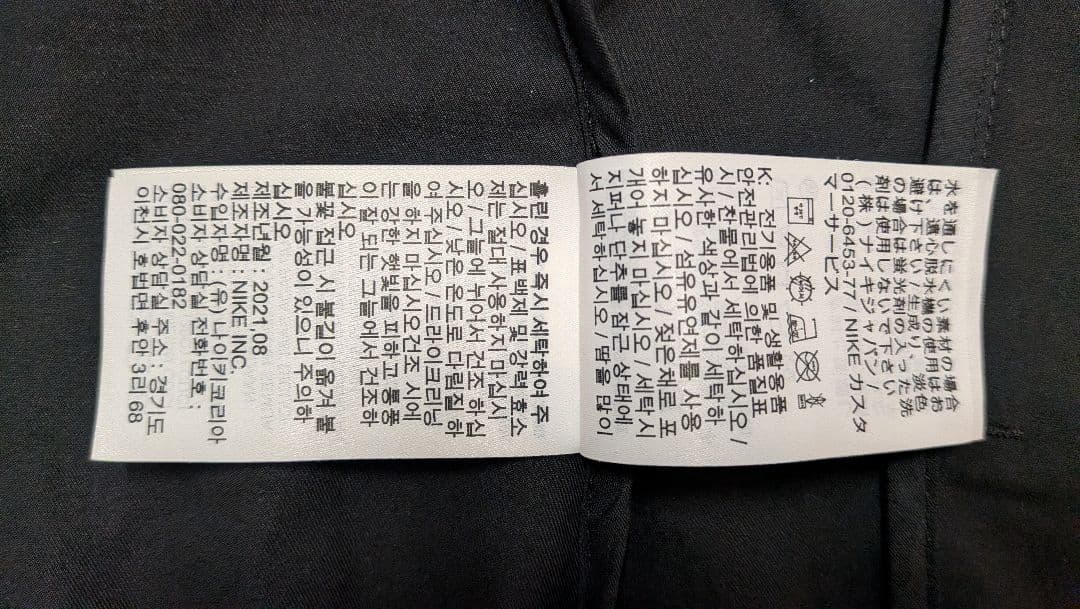 水を通しにくい素材の場合
は、遠心脱水機の使用はお
避け下さい / 生成り、淡色
の場合は蛍光剤の入った洗
剤は使用しないで下さい
(株) ナイキジャパン /
0120-6453-77 / NIKE カスタ
マーサービス
K: 전기용품 및 생활용품
안전관리법에 의한 품질표
시 / 찬물에서 세탁하십시오 /
유사한 색상과 같이 세탁하
십시오 / 섬유유연제를 사용
하지 마십시오 / 젖은채로 포
개어 놓지 마십시오 / 세탁시
지퍼나 단추를 잠근 상태에
서 세탁하십시오 / 땀을 많이
흘린 경우 즉시 세탁하여 주
십시오 / 표백제 및 강력 효소
제는 절대 사용하지 마십시
오 / 그늘에 뉘어서 건조 하십
시오 / 낮은 온도로 다림질 하
여 주십시오 / 드라이크리닝
을 하지 마십시오건조 시에
는 강한 햇빛을 피하고 통풍
이 잘 되는 그늘에서 건조하
십시오
불꽃 접근 시 불길이 옮겨 붙
을 가능성이 있으니 주의하
십시오
제조년월 : 2021.08
제조자명 : NIKE INC.
수입자명 : (유) 나이키코리아
소비자 상담실 전화번호 :
080-022-0182
소비자 상담실 주소 : 경기도
이천시 호법면 후안 3리 68